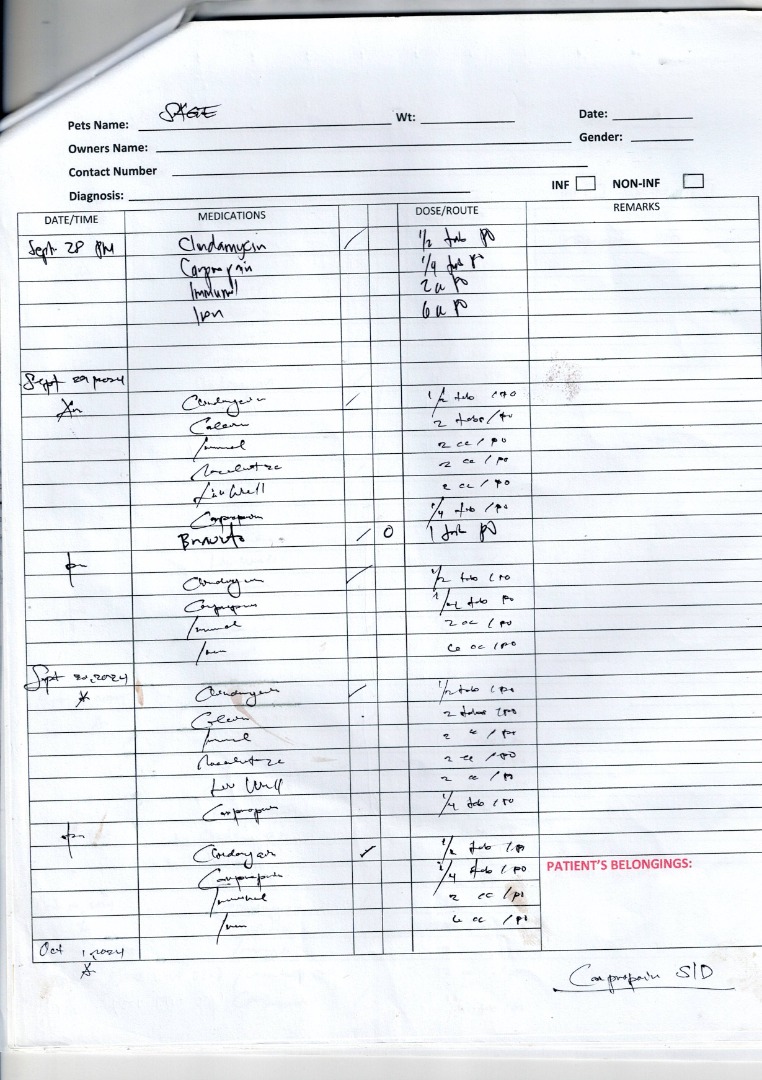 Pets Name: SAGE Wt: Date:
Owners Name: Gender:
Contact Number
Diagnosis: INF NON-INF
DATE/TIME MEDICATIONS DOSE/ROUTE REMARKS
Sept 28 PM Clindamycin 1/2 tab PO
1/4 tab PO
Immunol 2 cc PO
Iron 6 cc PO
Sept 29, 2024
Am 1/2 tab / PO
2 tabs / PO
2 cc / PO
2 cc / PO
Liv Well 2 cc / PO
Carpropain 1/4 tab / PO
Bravecto / 0 1 tab PO
pm 1/2 tab / PO
Carpropain 1/4 tab PO
2 cc / PO
6 cc / PO
Sept 30, 2024
1/2 tab / PO
2 tabs / PO
2 cc / PO
2 cc / PO
Liv Well 2 cc / PO
Carpropain 1/4 tab / PO
pm 1/2 tab / PO
Carpropain 1/4 tab / PO
2 cc / PO
6 cc / PO
PATIENT'S BELONGINGS:
Oct 1, 2024
Carpropain SID